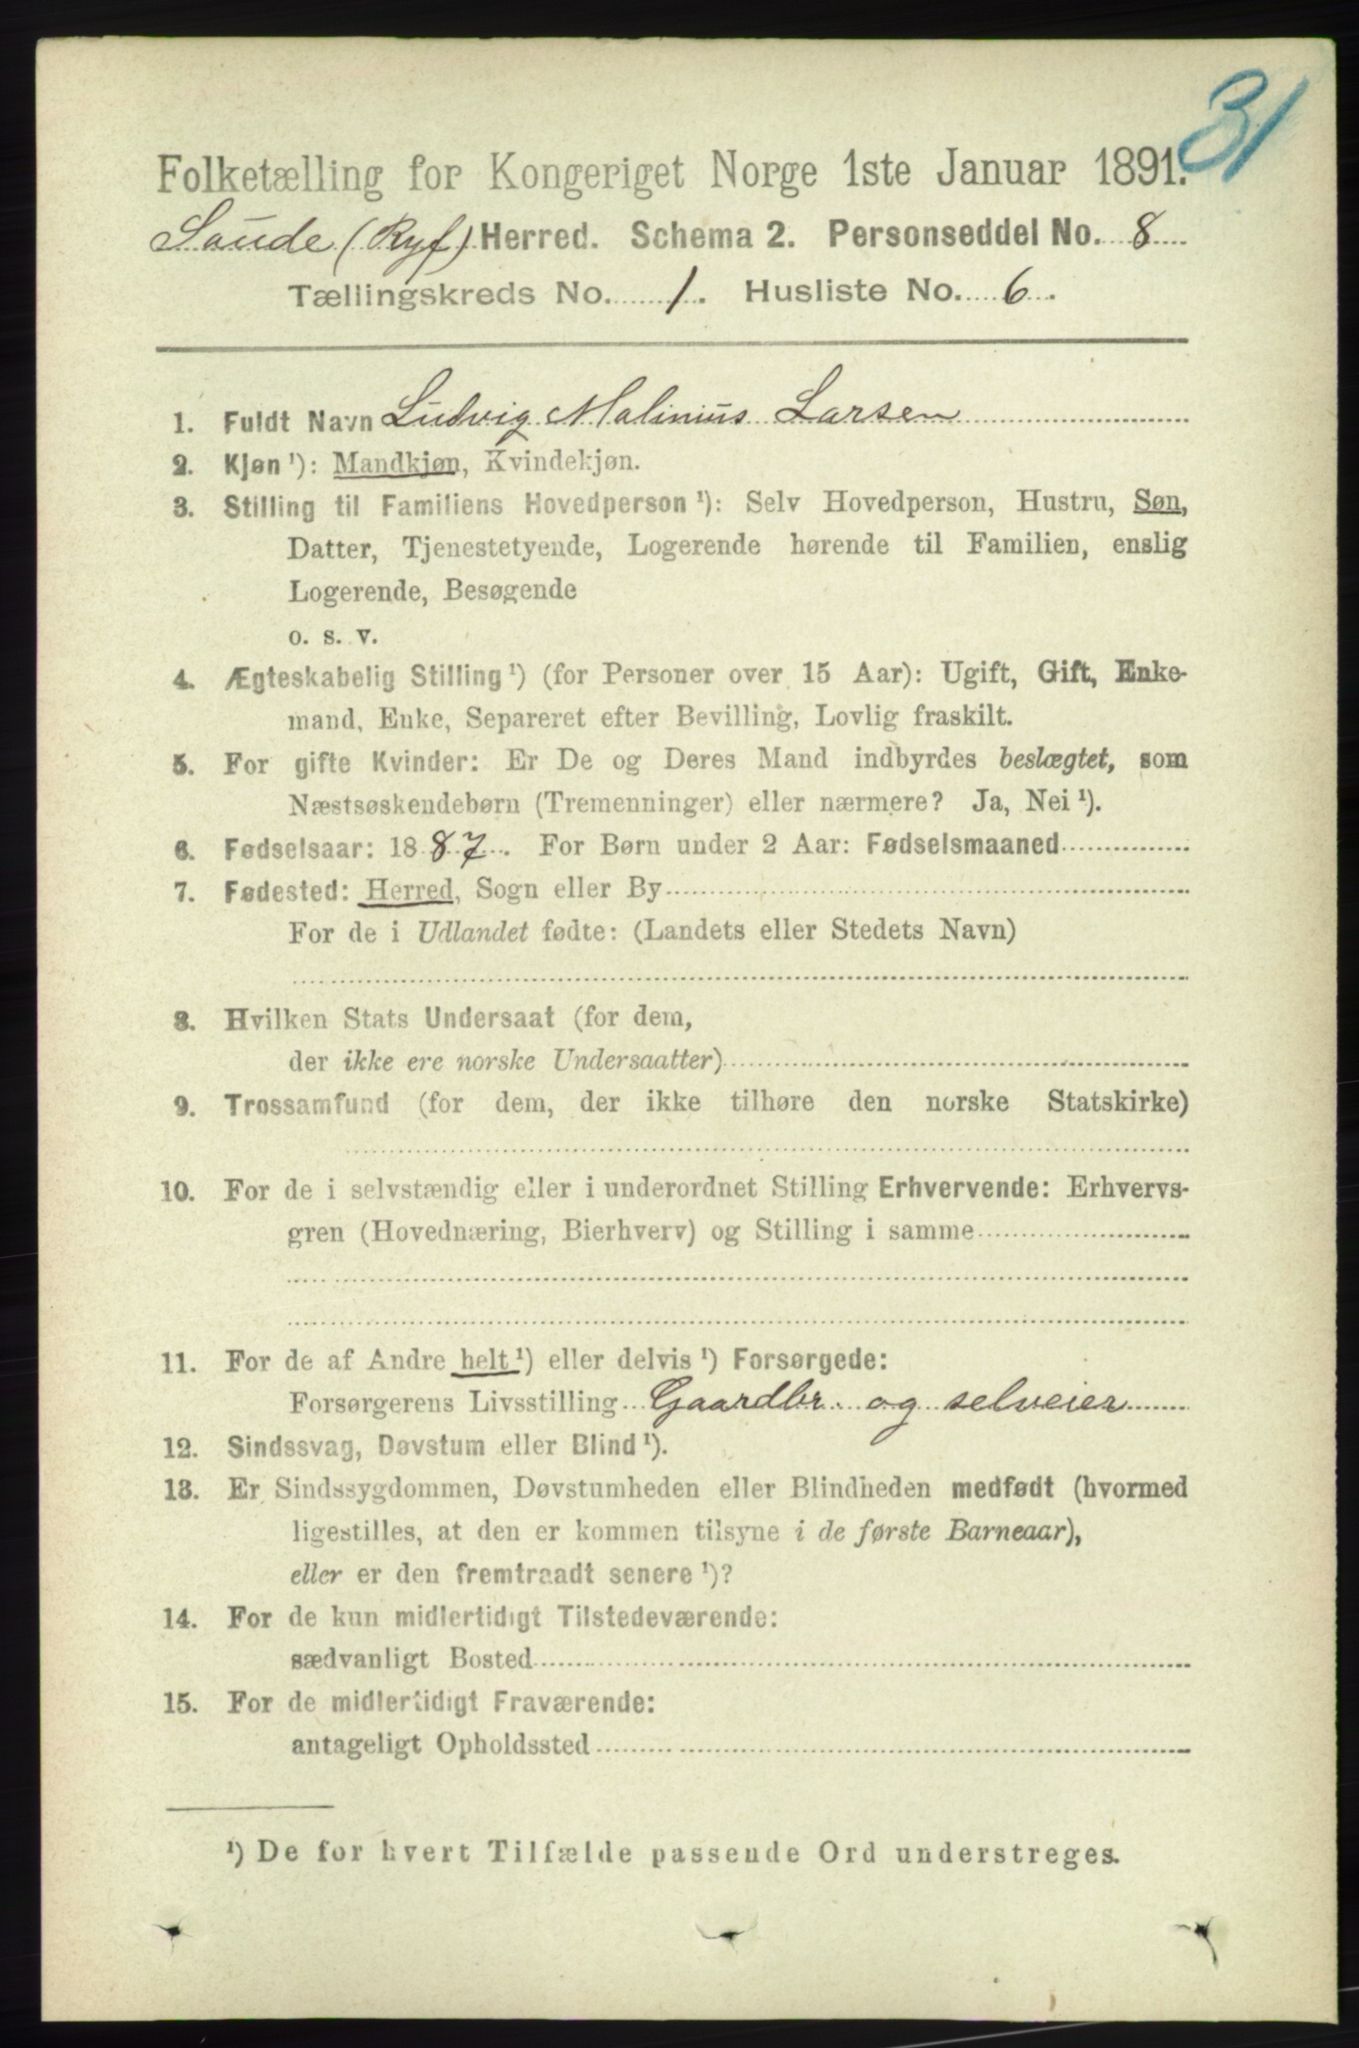 31
Folketælling for Kongeriget Norge 1ste Januar 1891.
Saude (Ryf) Herred. Schema 2. Personseddel No. 8
Tællingskreds No. 1. Husliste No. 6.
1. Fuldt Navn Ludvig Malinius Larsen
2. Kjøn¹): Mandkjøn, Kvindekjøn.
3. Stilling til Familiens Hovedperson¹): Selv Hovedperson, Hustru, Søn,
Datter, Tjenestetyende, Logerende hørende til Familien, enslig
Logerende, Besøgende
o. s. v.
4. Ægteskabelig Stilling¹) (for Personer over 15 Aar): Ugift, Gift, Enke-
mand, Enke, Separeret efter Bevilling, Lovlig fraskilt.
5. For gifte Kvinder: Er De og Deres Mand indbyrdes beslægtet, som
Næstsøskendebørn (Tremenninger) eller nærmere? Ja, Nei¹).
6. Fødselsaar: 1887. For Børn under 2 Aar: Fødselsmaaned
7. Fødested: Herred, Sogn eller By
For de i Udlandet fødte: (Landets eller Stedets Navn)
8. Hvilken Stats Undersaat (for dem,
der ikke ere norske Undersaatter)
9. Trossamfund (for dem, der ikke tilhøre den norske Statskirke)
10. For de i selvstændig eller i underordnet Stilling Erhvervende: Erhvervs-
gren (Hovednæring, Bierhverv) og Stilling i samme
11. For de af Andre helt¹) eller delvis¹) Forsørgede:
Forsørgerens Livsstilling Gaardbr. og selveier
12. Sindssvag, Døvstum eller Blind¹).
13. Er Sindssygdommen, Døvstumheden eller Blindheden medfødt (hvormed
ligestilles, at den er kommen tilsyne i de første Barneaar),
eller er den fremtraadt senere¹)?
14. For de kun midlertidigt Tilstedeværende:
sædvanligt Bosted
15. For de midlertidigt Fraværende:
antageligt Opholdssted
¹) De for hvert Tilfælde passende Ord understreges.